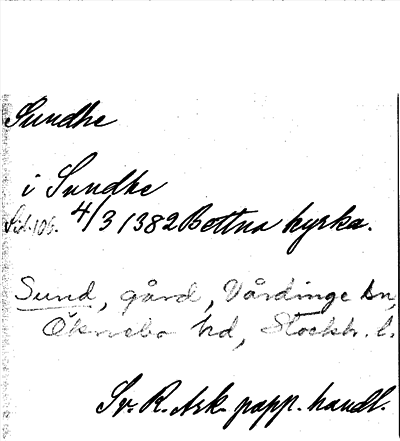 Sundhe
i Sundhe
Sid. 105. 4/3 1382 Bettna kyrka.
Sund, gård, Vårdinge sn,
Öknebo hd, Stockh. l.
Sv. R. Ark. papp. handl.